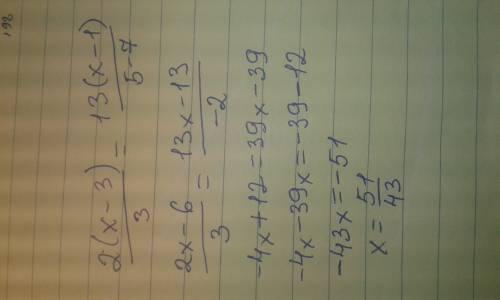 2(x-3)/3 = 13(x-1)/5-7
2x-6/3 = 13x-13/-2
-4x+12=39x-39
-4x-39x=-39-12
-43x=-51
x=51/43